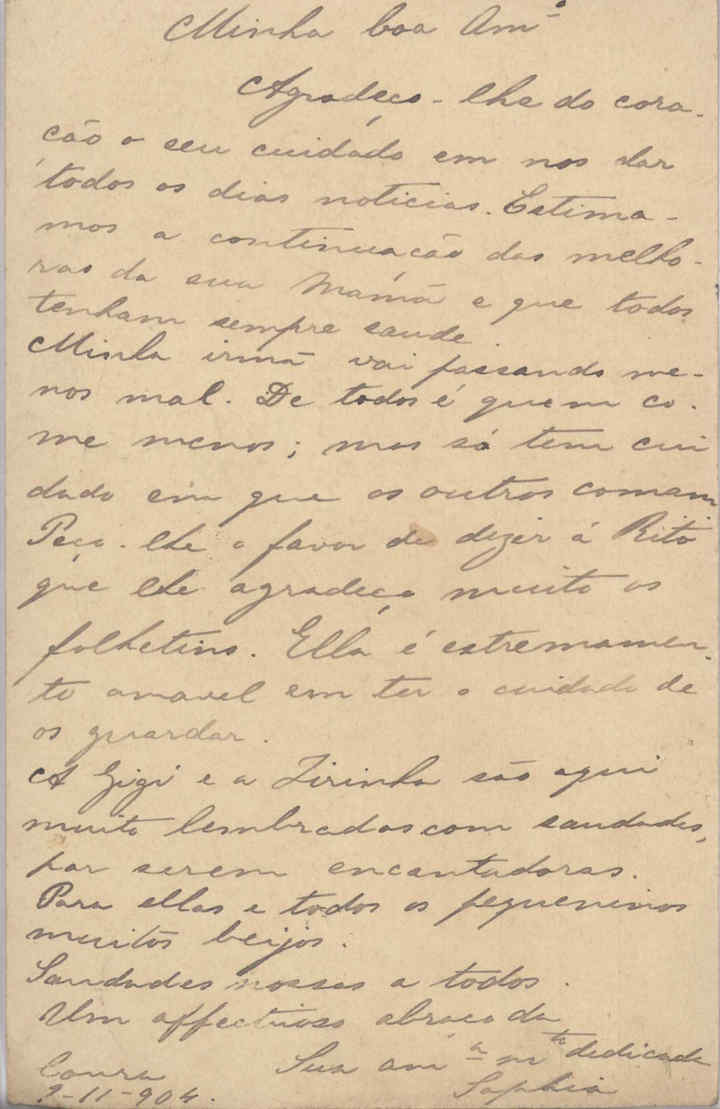 Minha boa Amª
Agradeço-lhe do cora-
ção o seu cuidado em nos dar
todos os dias noticias. Estima-
mos a continuação das melho-
ras da sua Mamã e que todos
tenham sempre saude.
Minha irmã vai passando me-
nos mal. De todos é quem co-
me menos; mas só tem cui
dado em que os outros comam
Peço-lhe o favor de dizer á Rita
que lhe agradeço muito os
folhetins. Ella é estremamen-
te amavel em ter o cuidado de
os guardar.
A Gigi e a Zirinha são aqui
muito lembradas com saudades,
por serem encantadoras.
Para ellas e todos os pequeninos
muitos beijos.
Saudades nossas a todos.
Um affectuoso abraço da
Sua amª mtº dedicada
Coura Sophia
9-11-904.